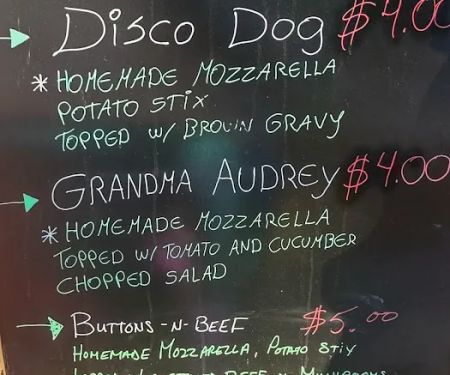 → Disco Dog $4.00
* HOMEMADE MOZZARELLA
POTATO STIX
TOPPED W/ BROWN GRAVY
→ GRANDMA AUDREY $4.00
* HOMEMADE MOZZARELLA
TOPPED W/ TOMATO AND CUCUMBER
CHOPPED SALAD
→ BUTTONS -N- BEEF $5.00
HOMEMADE MOZZARELLA, POTATO STIX
BEEF N MUSHROOMS